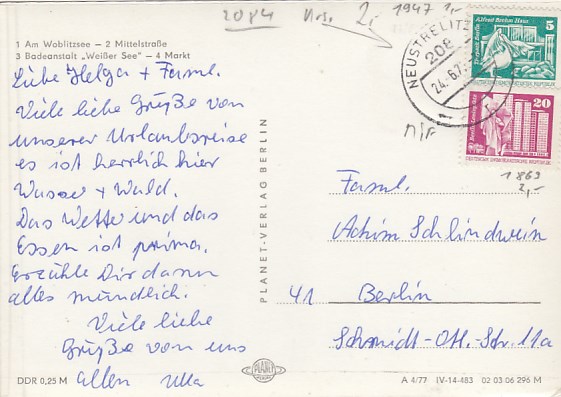 2084
2,-
1947 2,-
1 Am Woblitzsee — 2 Mittelstraße
3 Badeanstalt „Weißer See" — 4 Markt
Liebe Helga + Faml.
Viele liebe Grüße von
unserer Urlaubsreise
es ist herrlich hier
Wasser + Wald.
Das Wetter und das
Essen ist prima.
Erzähle Dir dann
alles mündlich.
Viele liebe
Grüße von uns
allen Ulla
DDR 0,25 M
PLANET-VERLAG BERLIN
PLANET
NEUSTRELITZ
208
24.-6.7
Alfred Brehm Haus
5
20
1869
2,-
Faml.
Achim Schlindwein
41 Berlin
Schmidt-Ott.-Str. 11a
A 4/77 IV-14-483 02 03 06 296 M